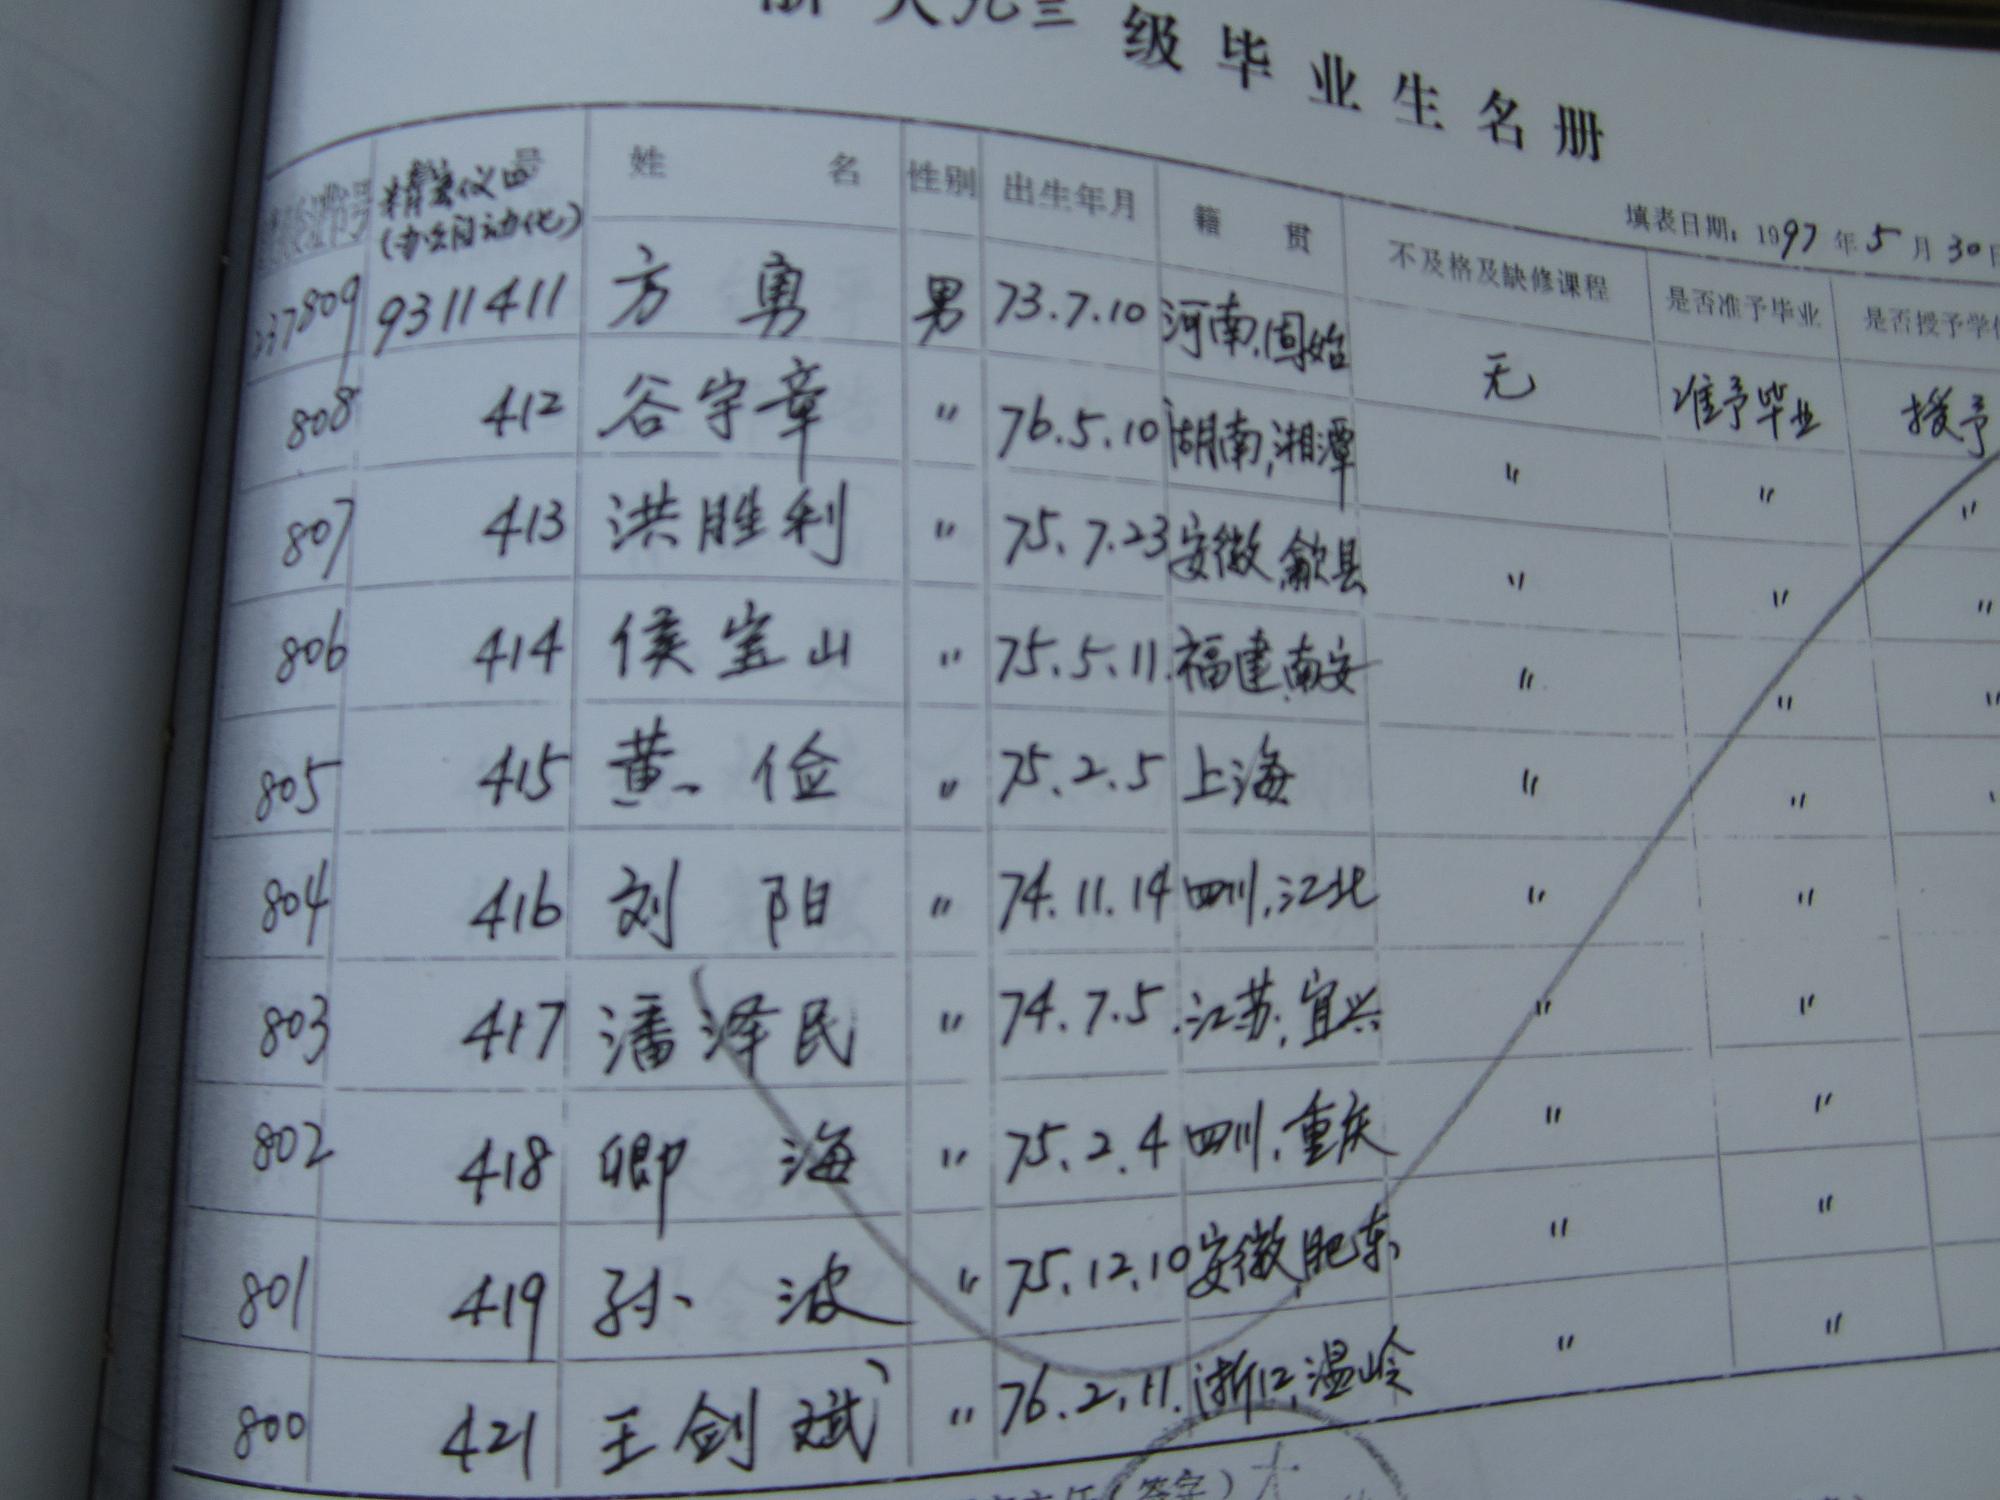 浙大九三级毕业生名册
填表日期：1997年5月30日
精密仪器 号 姓名 性别 出生年月 籍贯 不及格及缺修课程 是否准予毕业 是否授予学
(办公自动化)
237809 9311411 方勇 男 73.7.10 河南.固始 无 准予毕业 授予
808 412 谷宇章 〃 76.5.10 湖南,湘潭 〃 〃 〃
807 413 洪胜利 〃 75.7.23 安徽,歙县 〃 〃 〃
806 414 侯宝山 〃 75.5.11. 福建.南安 〃 〃 〃
805 415 黄俭 〃 75.2.5 上海 〃 〃
804 416 刘阳 〃 74.11.14 四川.江北 〃 〃
803 417 潘泽民 〃 74.7.5. 江苏.宜兴 〃 〃
802 418 卿海 〃 75.2.4 四川.重庆 〃 〃
801 419 孙波 〃 75.12.10 安徽,肥东 〃 〃
800 421 王剑斌 〃 76.2.11. 浙江,温岭 〃 〃
(签字)